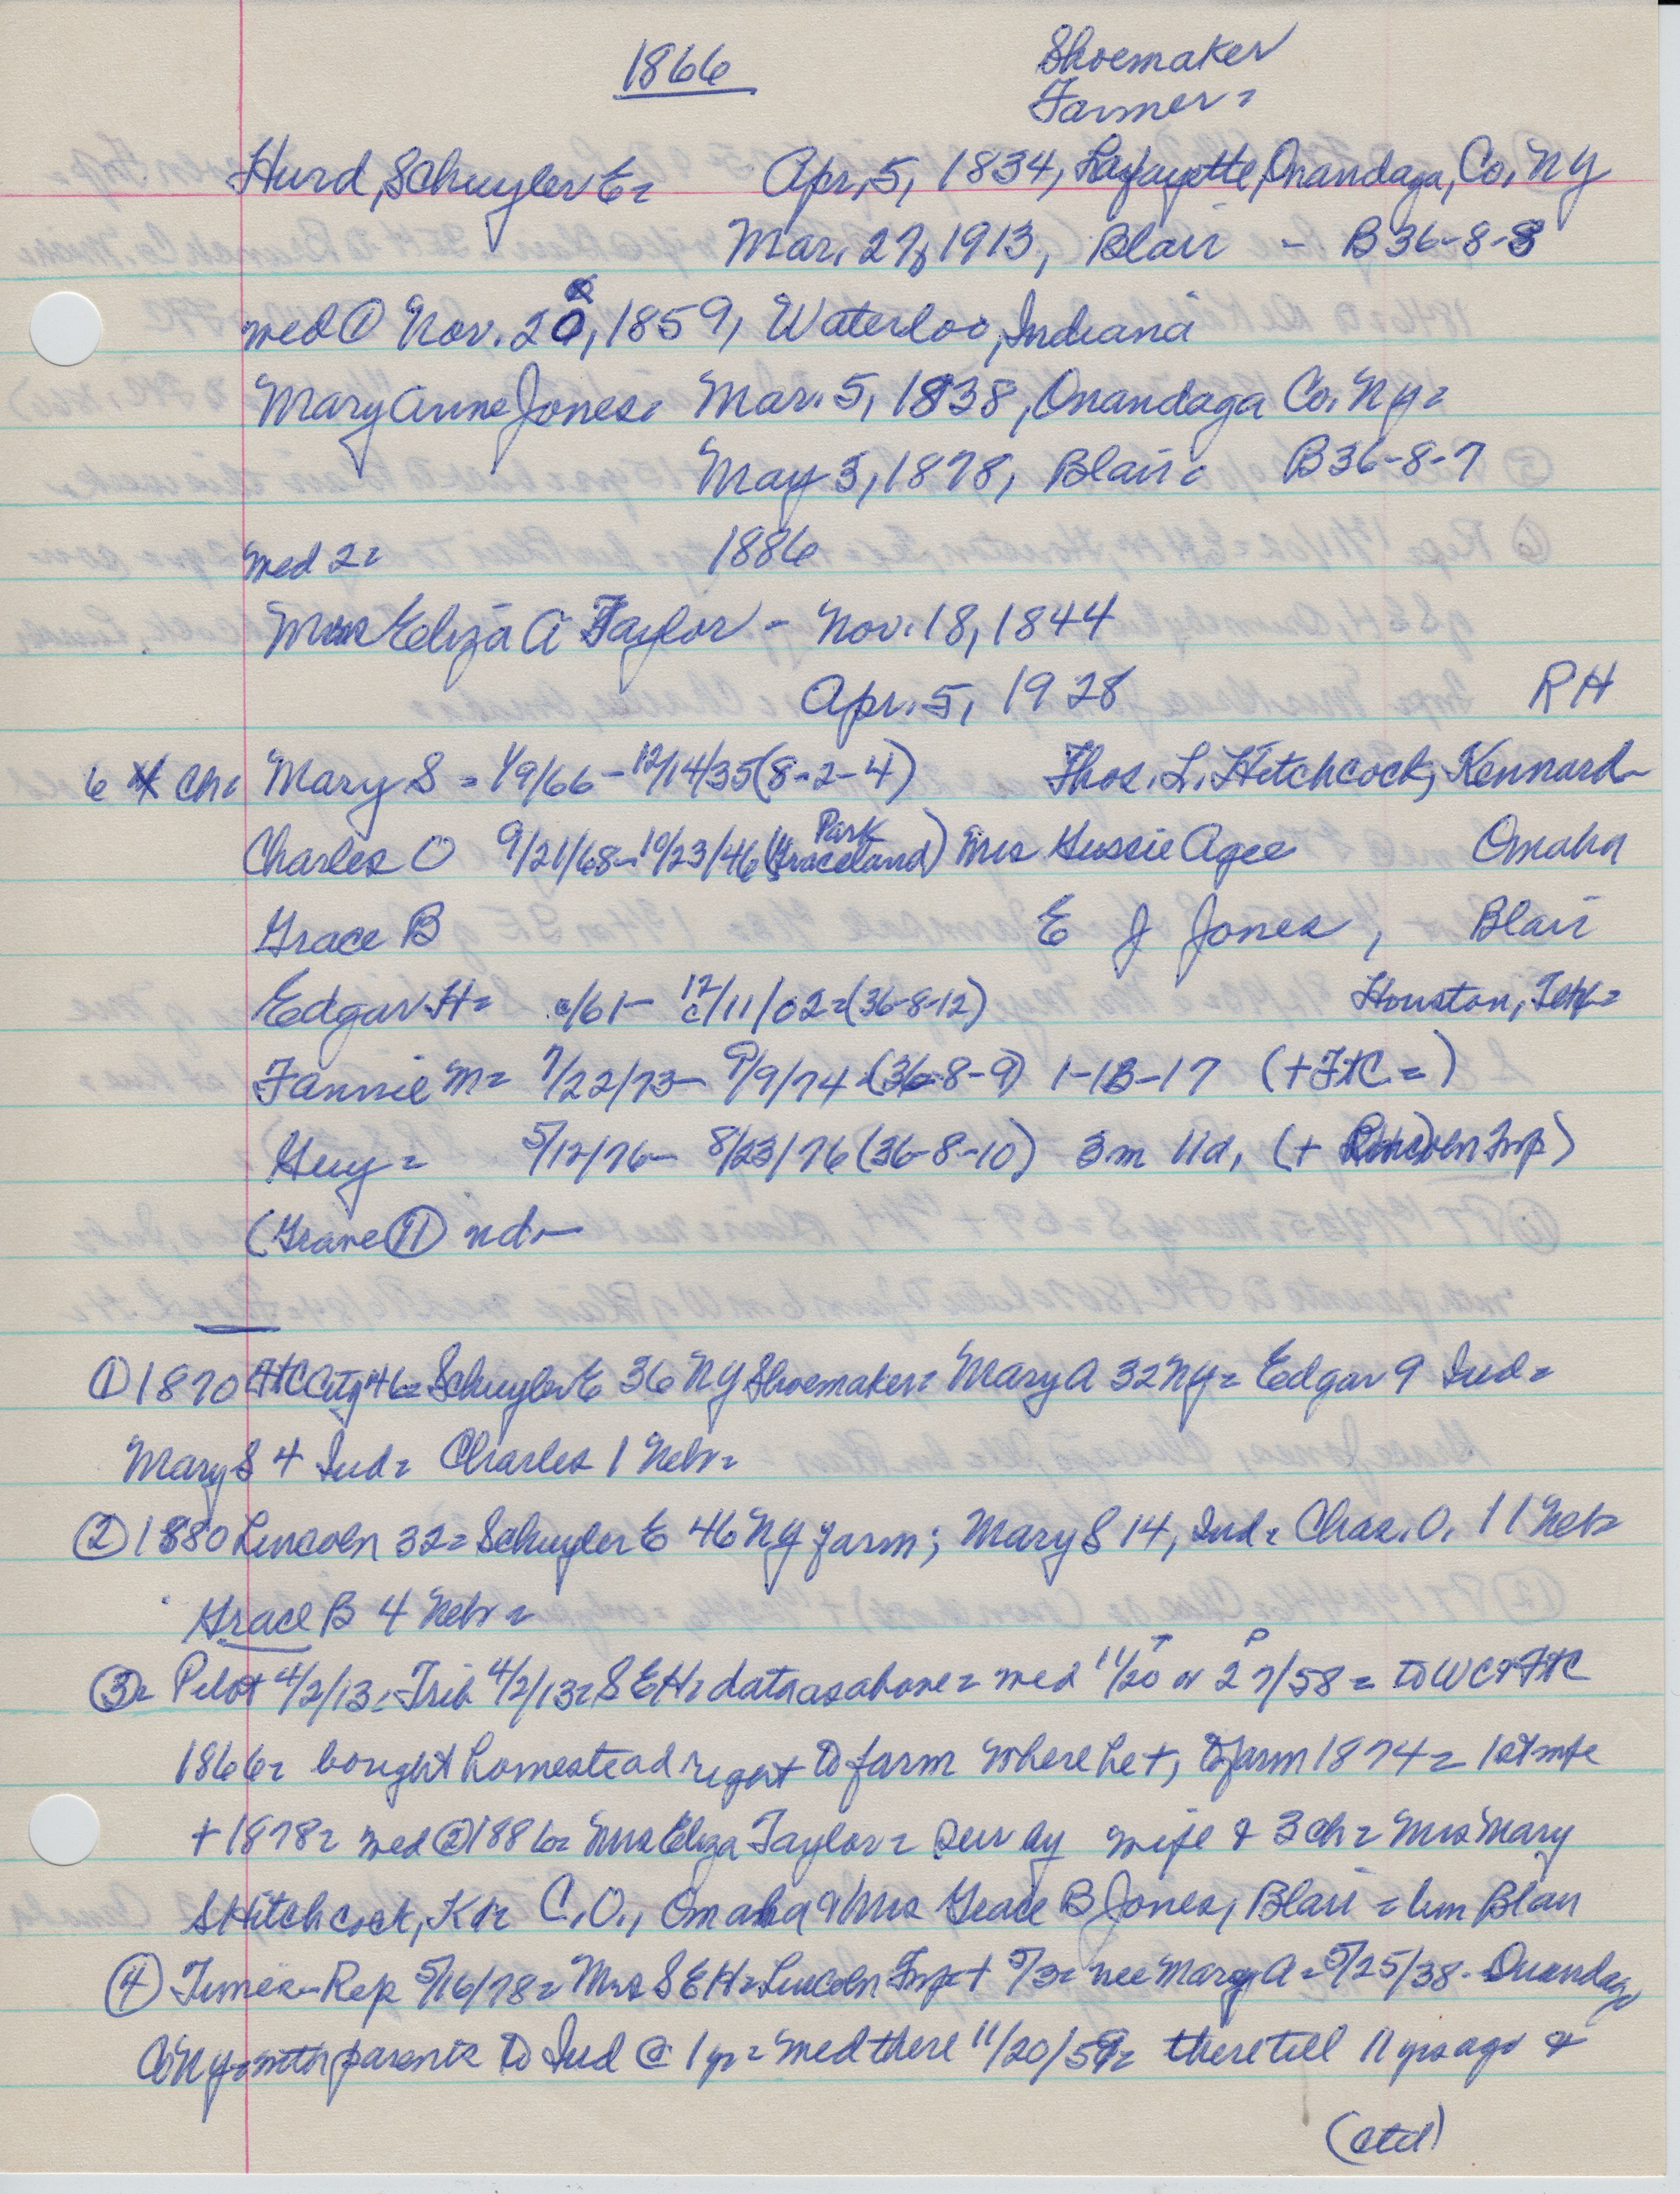 1866
Shoemaker
Farmer =
Hurd, Schuyler E = Apr. 5, 1834, Lafayette, Onandaga, Co, NY
Mar. 27, 1913, Blair - B36-8-8
med ① Nov. 20, 1859, Waterloo, Indiana
Mary Anne Jones = Mar. 5, 1838, Onandaga Co. NY =
May 3, 1878, Blair = B36-8-7
med 2 = 1886
Mrs Eliza A Taylor - Nov. 18, 1844
Apr. 5, 1928 RH
6 ch = Mary S = 1/9/66 - 12/14/35 (8-2-4) Thos. L. Hitchcock, Kennard
Charles O 9/21/68 - 10/23/46 (Graceland Park) Mrs Gussie Agee Omaha
Grace B E J Jones, Blair
Edgar H = c/61 - 12/11/02 = (36-8-12) Houston, Tex =
Fannie M = 7/22/73 - 9/9/74 = (36-8-9) 1-1B-17 (+ FtC =)
Guy = 5/12/76 - 8/23/76 (36-8-10) 3m 11d, (+ Lincoln Twp)
(Grave ⑪ nd -
① 1870 FtC City 46 = Schuyler E 36 NY Shoemaker = Mary A 32 NY = Edgar 9 Ind =
Mary S 4 Ind = Charles 1 Nebr =
② 1880 Lincoln 32 = Schuyler E 46 NY farm; Mary S 14, Ind = Chas. O. 11 Neb =
Grace B 4 Nebr =
③ = Pilot 4/2/13. Trib 4/2/13 = S E H = data as above = med 11/20 T or 27 P/58 = to WC & FtC
1866 = bought homestead right to farm where he +, to farm 1874 = 1st wife
+ 1878 = med ② 1886 = Mrs Eliza Taylor = surv by wife & 3 ch = Mrs Mary
S Hitchcock, K = C.O., Omaha & Mrs Grace B Jones, Blair = bur Blair
④ Times-Rep 5/16/78 = Mrs S E H = Lincoln Twp + 5/3 = nee Mary A = 5/25/38 - Onandaga
Co NY = with parents to Ind @ 1 yr = med there 11/20/59 = there till 11 yrs ago &
(ctd)